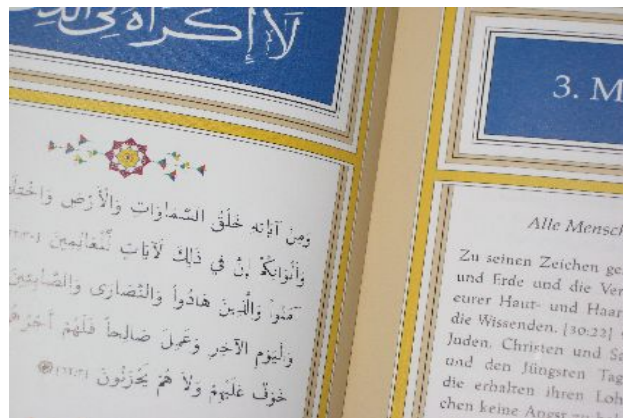 لَا إِكْرَاهَ فِي الدِّ
وَمِنْ آيَاتِهِ خَلْقُ السَّمَاوَاتِ وَالْأَرْضِ وَاخْتِلَا
وَأَلْوَانِكُمْ إِنَّ فِي ذَلِكَ لَآيَاتٍ لِّلْعَالِمِينَ
آمَنُوا وَالَّذِينَ هَادُوا وَالنَّصَارَى وَالصَّابِئِينَ
وَلْيَوْمِ الْآخِرِ وَعَمِلَ صَالِحاً فَلَهُمْ أَجْرُهُمْ
خَوْفٌ عَلَيْهِمْ وَلَا هُمْ يَحْزَنُونَ
3. M
Alle Mensch
Zu seinen Zeichen ge
und Erde und die Ver
eurer Haut- und Haar
die Wissenden. [30:22]
Juden, Christen und Sa
und den Jüngsten Tag
die erhalten ihren Loh
chen keine Angst